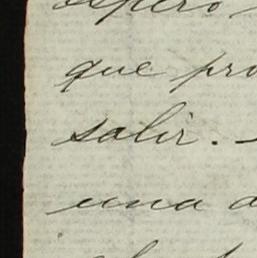 espero
que pro
salir. -
una a